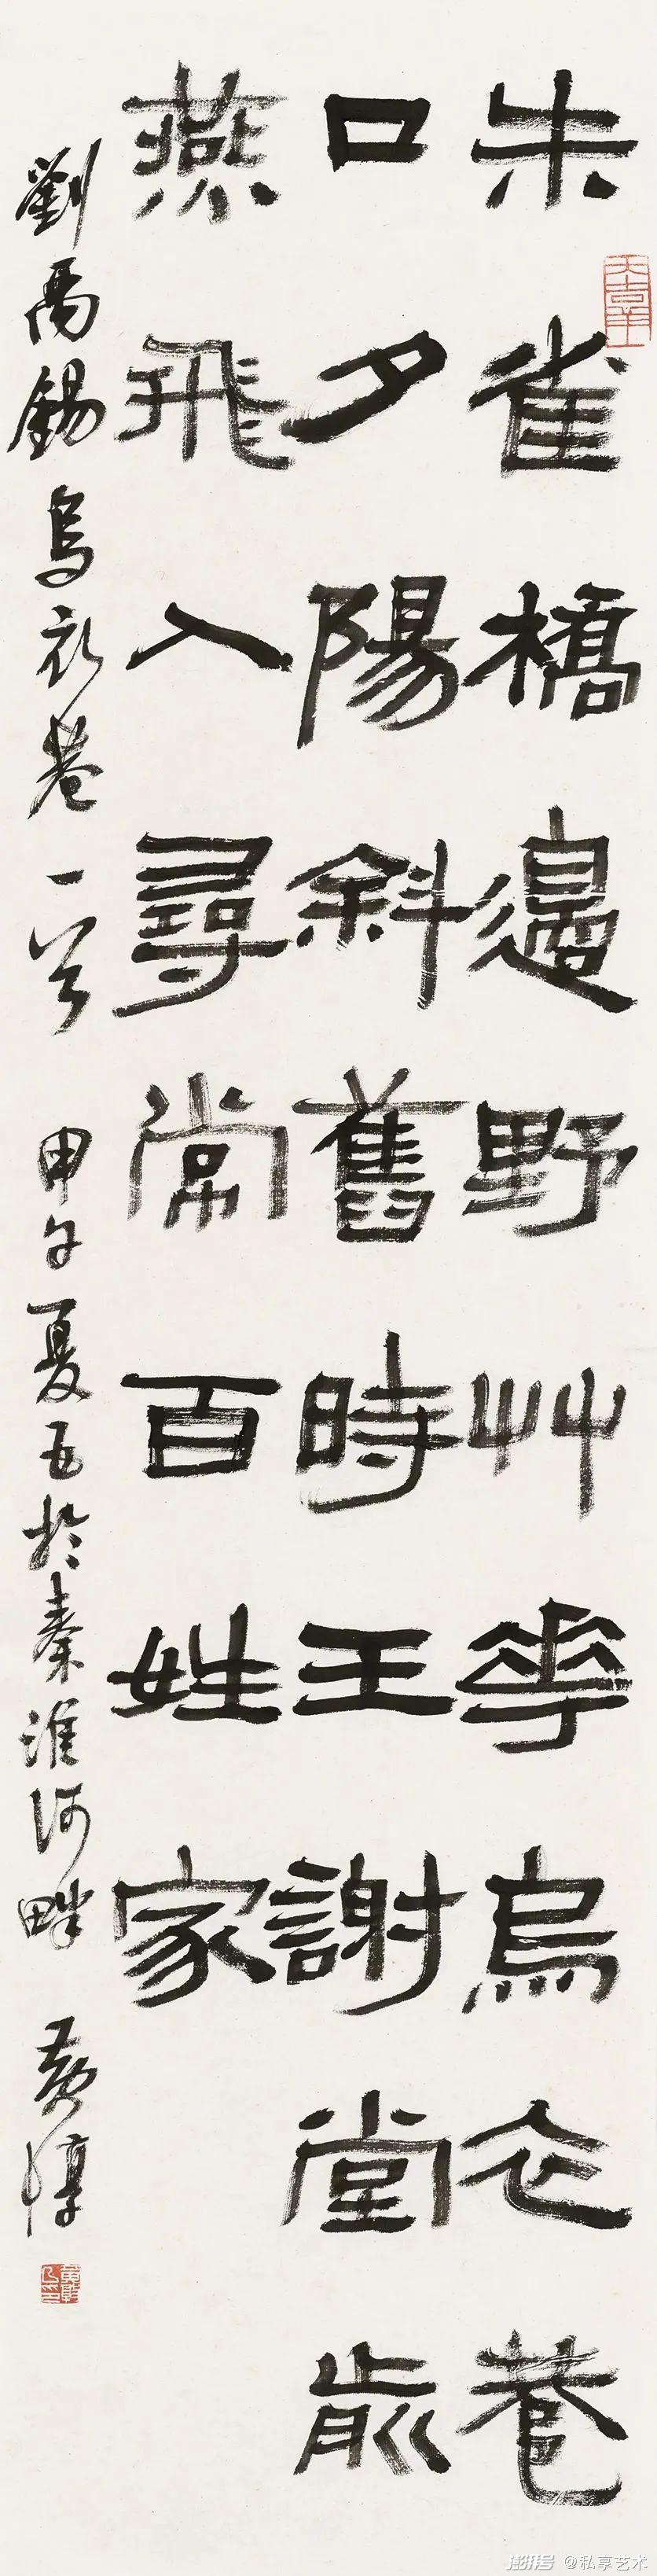 朱雀橋邊野艸花烏衣巷
口夕陽斜舊時王謝堂前
燕飛入尋常百姓家
劉禹錫烏衣巷一首 甲午夏五於秦淮河畔 黃惇
澎湃号 @私享艺术